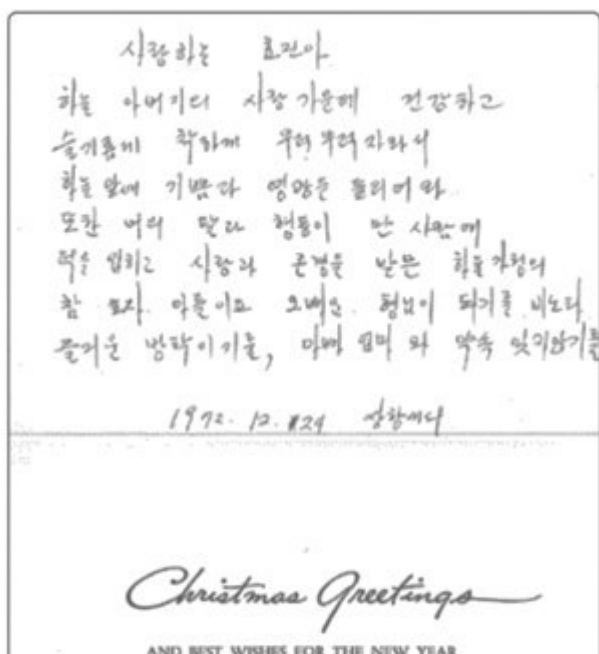 사랑하는 효진아
하늘 아버지의 사랑 가운데 건강하고
슬기롭게 착하게 무럭무럭 자라서
하늘 앞에 기쁨과 영광을 돌리어라
또한 너의 말과 행동이 만 사람에
덕을 입히고 사랑과 존경을 받는 하늘가정의
참 효자 아들이요 오빠요 형님이 되기를 비노라
즐거운 방학이기를, 아빠 엄마와 약속 잊지않기를
1972. 12. 24
Christmas Greetings
AND BEST WISHES FOR THE NEW YEAR